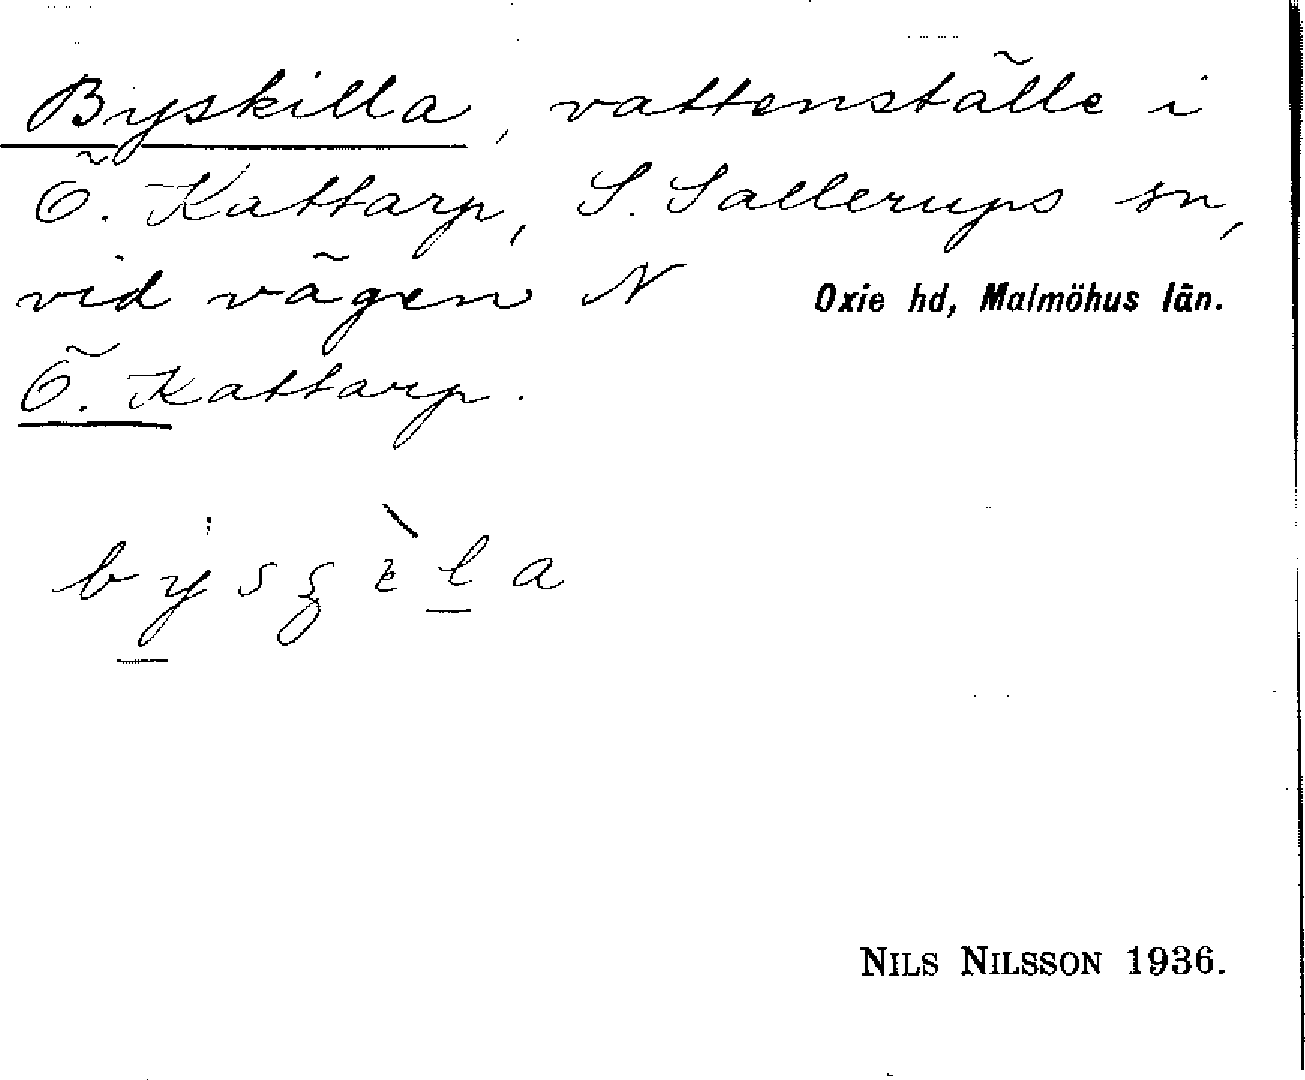 Byskilla, vattenställe i
Ö. Kattarp, S. Sallerups sn,
vid vägen N
Oxie hd, Malmöhus län.
Ö. Kattarp.
NILS NILSSON 1936.